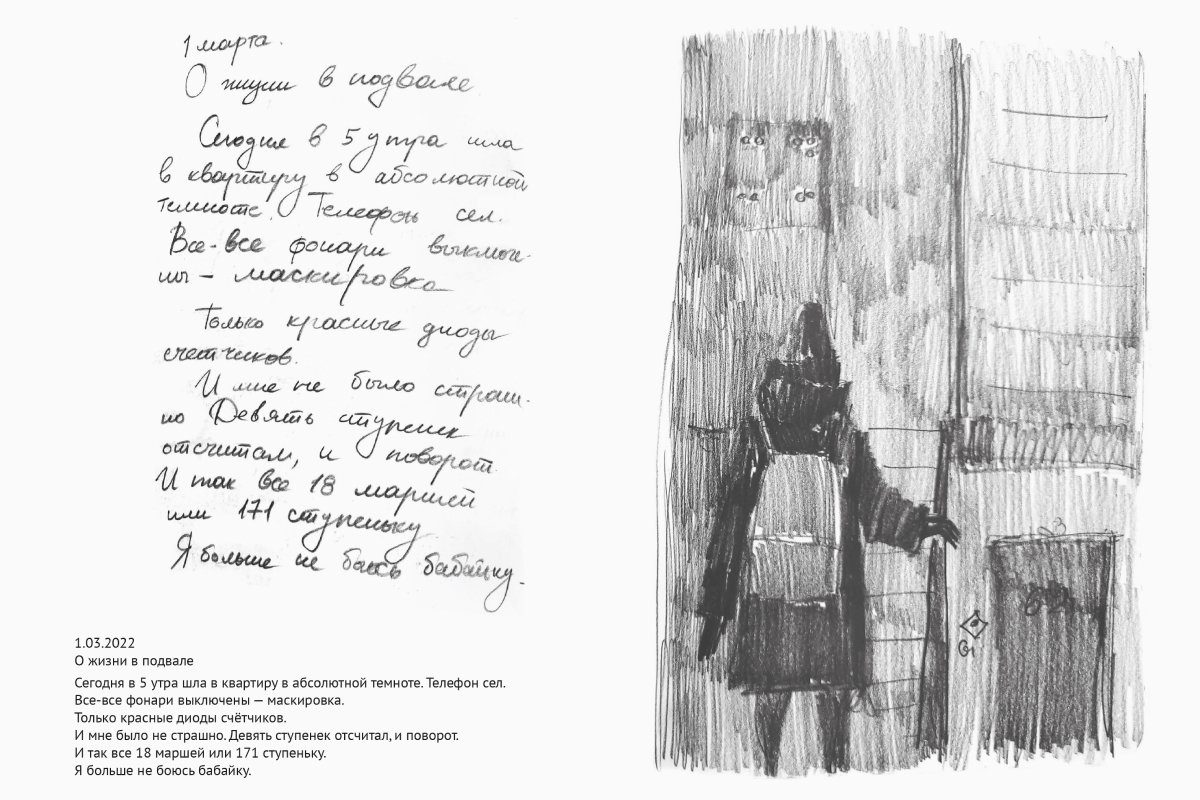 1 марта.
О жизни в подвале
Сегодня в 5 утра шла
в квартиру в абсолютной
темноте. Телефон сел.
Все-все фонари выключе-
ны – маскировка
Только красные диоды
счетчиков.
И мне не было страш-
но Девять ступенек
отсчитал, и поворот.
И так все 18 маршей
или 171 ступеньку
Я больше не боюсь бабайку.
1.03.2022
О жизни в подвале
Сегодня в 5 утра шла в квартиру в абсолютной темноте. Телефон сел.
Все-все фонари выключены — маскировка.
Только красные диоды счётчиков.
И мне было не страшно. Девять ступенек отсчитал, и поворот.
И так все 18 маршей или 171 ступеньку.
Я больше не боюсь бабайку.